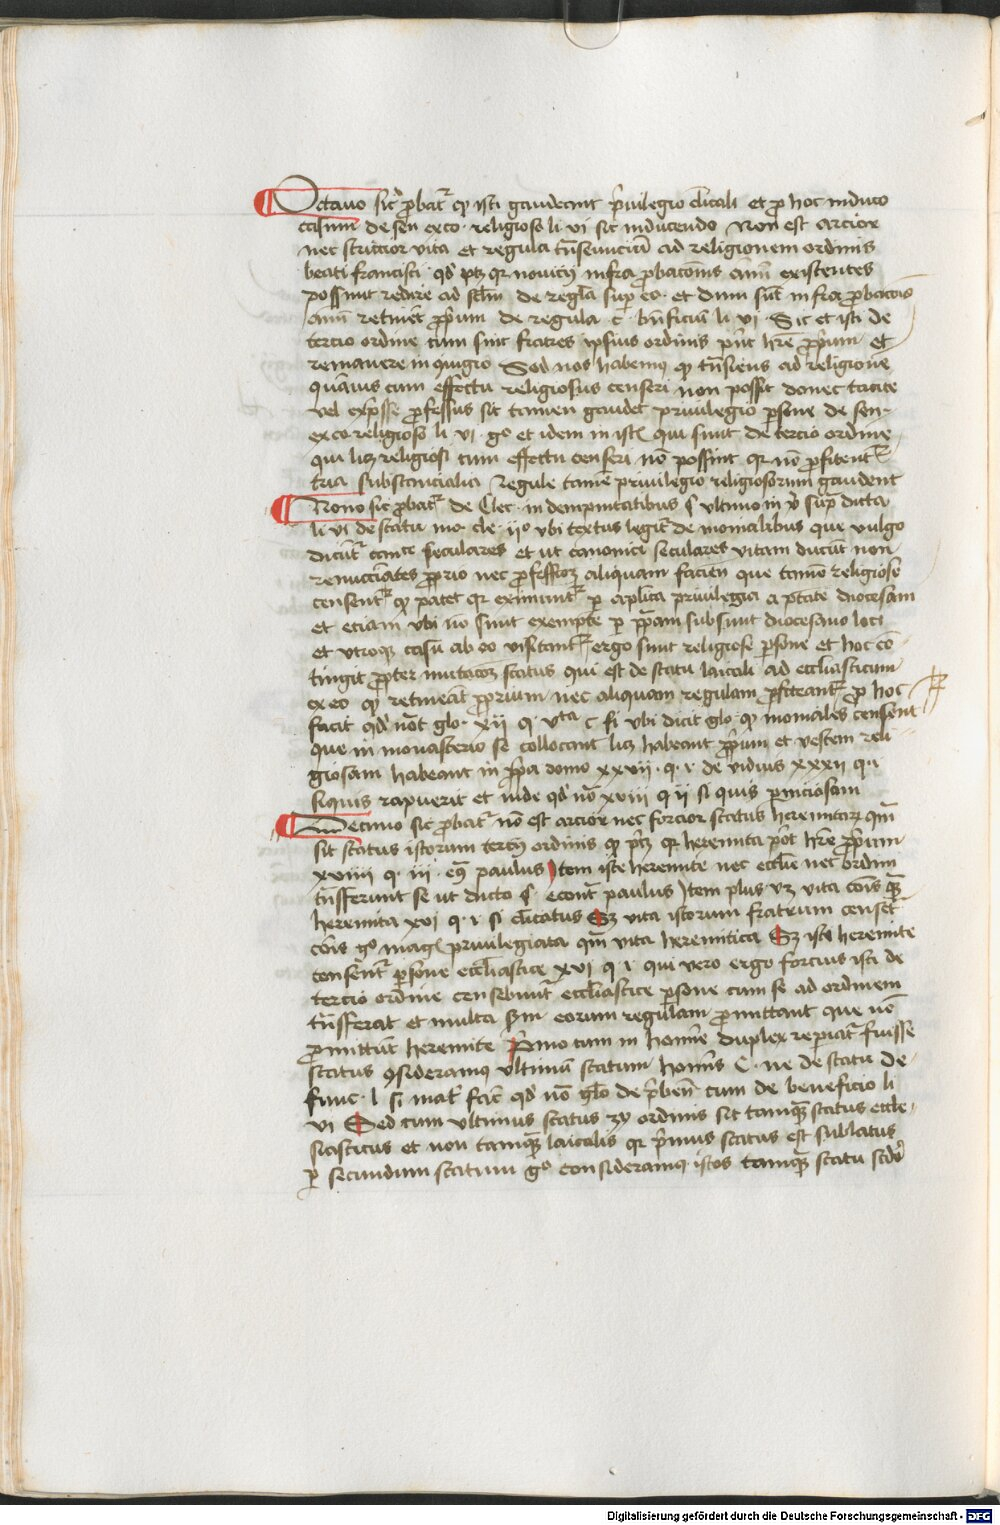 Octauo sic probatr qp isti gaudeant priuilegio clericali et pro hoc induco
casum de sen exco. religioso li vi sic inducendo Non est arcior
nec strictior vita et regula transeuncium ad religionem ordinis
beati francisci qd ptz qr nouicij infra probacionis annum existentes
possint redire ad sclm de regla sup eo. et dum sunt infra probacois
annum retinent proprium de regula c. bnficium li vi. Sic et isti de
tercio ordine cum sint fratres ipsius ordinis pnt hre proprium et
remanere in coniugio Sed nos habemus qp transiens ad religionem
quamuis cum effectu religiosus censeri non possit donec tacite
vel expresse professus sit tamen gaudet priuilegio persone de sen.
exco religioso li vi. go et idem in istis qui sunt de tercio ordine
qui licz religiosi cum effectu censeri non possint qr non profitentr
tria substancialia regule tamen priuilegio religiosorum gaudent
Nono sic probatr de Elec. in dempnitatibus s vltimo in vo supra dicta
li vi de statu mo. cle. ijo vbi textus legitr de monialibus que vulgo
dicuntr seculares et ut canonici seculares vitam ducunt non
renunciantes proprio nec professionem aliquam facien que tamen religiose
censentr qp patet qr eximuntr per aplica priuilegia a ptate diocesani
et eciam vbi non sunt exempte per ipsam subsunt diocesano loci
et vtroqz casu ab eo visitantr ergo sunt religiose persone et hoc con-
tingit propter mutacionem status qui est de statu laicali ad ecclesiasticum
ex eo qp retineant proprium nec aliquam regulam profiteantr pro hoc
facit qd not glo. xii q. vta c fi vbi dicit glo. qp moniales censent
que in monasterio se collocant licz habeant proprium et vestem reli-
giosam habeant in propria domo xxvii. q. i. de viduis xxxii q. i
siquis rapuerit et inde qd no xviii q ii si quis perniciosam
Decimo sic probatr non est arcior nec forcior status heremitarum quam
sit status istorum tercij ordinis qp ptz qr heremita potest hre proprium
q. iii. paulus Item iste heremite nec ecclie nec ordini
transferunt se ut dicto s. econtra paulus Item plus vz vita cois quam
heremita xvi q. i si clicatus Sz vita istorum fratrum censetr
cois go magis priuilegiata quam vita heremitica Sz isti heremite
censentr persone ecclesiastice xvi q. i qui vero ergo forcius isti de
tercio ordine censebuntr ecclesiastice persone cum se ad ordinem
transferat et multa scdm eorum regulam promittant que non
promittunt heremite Primo cum in homine duplex repiatr fuisse
status consideramus vltimum statum hominis C. ne de statu de-
func. l si matr facit qd no glo de preben cum de beneficio li
vi Sed cum vltimus status ordinis sit tamquam status eccle-
siasticus et non tamquam laicalis qr primus status est sublatus
per secundum statum go consideramus istos tamquam statu